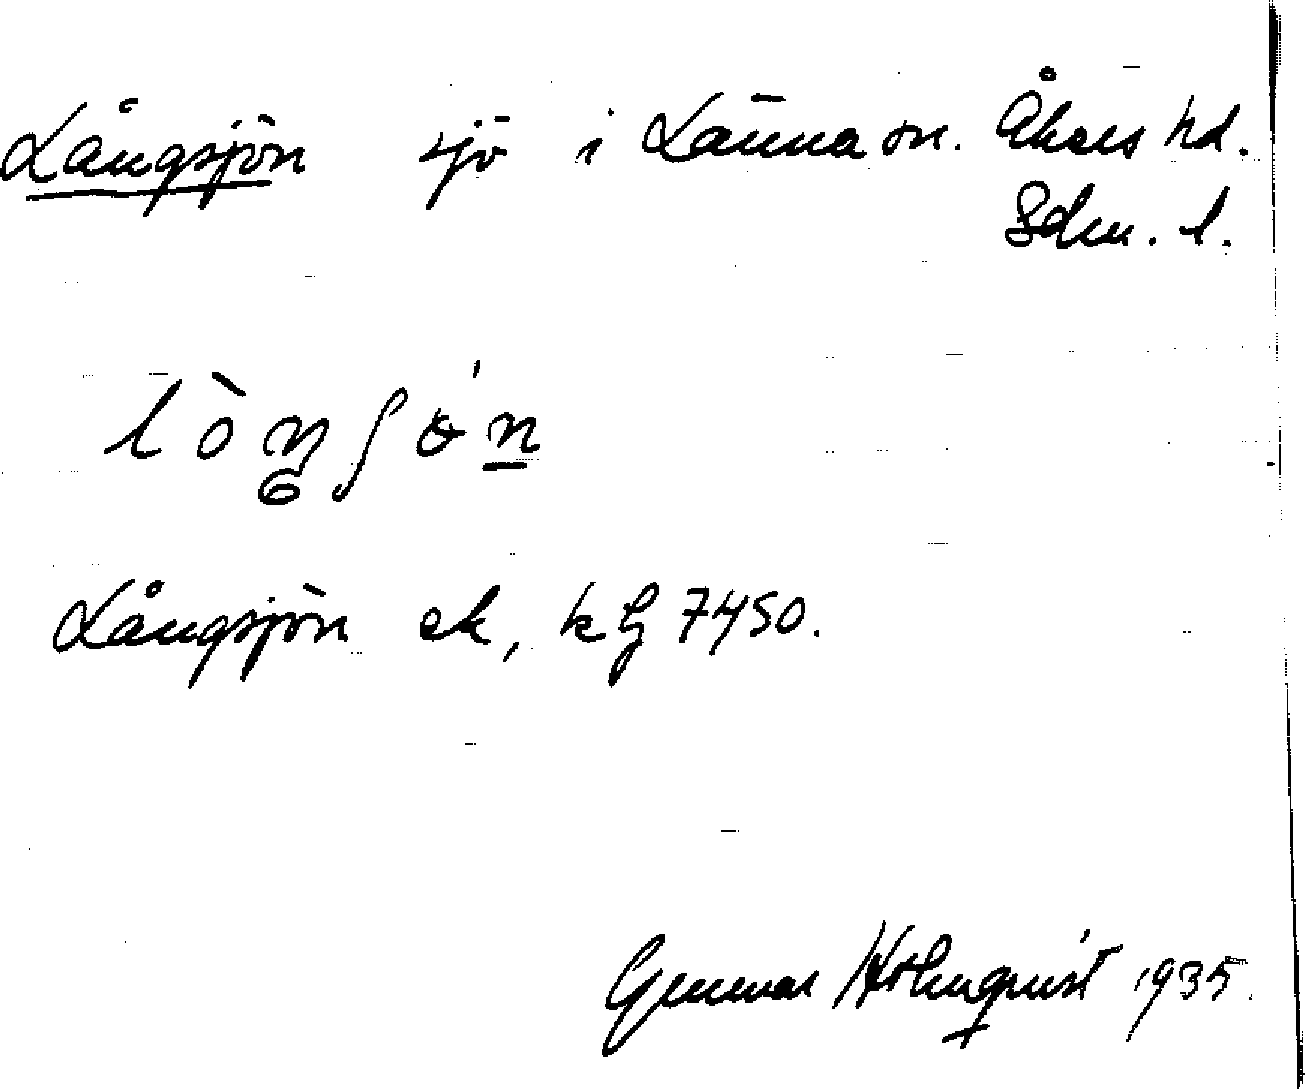 Långsjön sjö i Länna sn. Åkers hd.
Sdm. l.
Långsjön ek, kg 7450.
Gunnar Holmquist 1935.